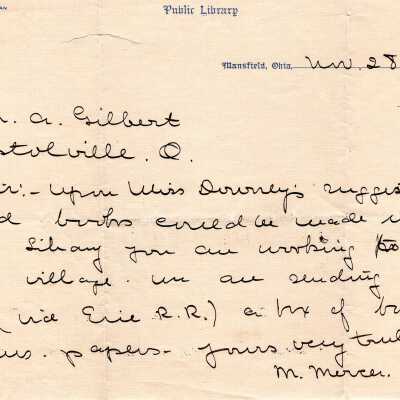 Public Library
Mansfield, Ohio, Nov. 28
A. Gilbert
stolville. O.
ir:- Upon Miss Downey's sugges
d books could be made u
Library you are working to
village. We are sending
(via Erie R.R.) a box of b
papers- Yours very trul
M. Mercer.